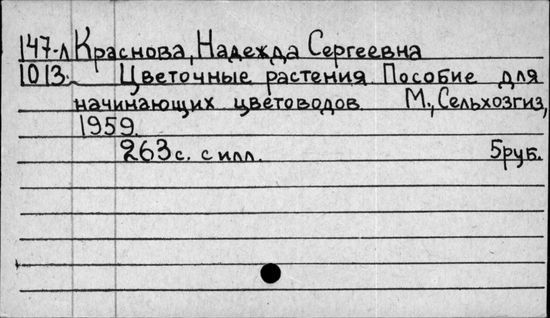 147-л Краснова, Надежда Сергеевна
1013. Цветочные растения. Пособие для
начинающих цветоводов М., Сельхозгиз,
1959.
263с. с илл. 5руб.